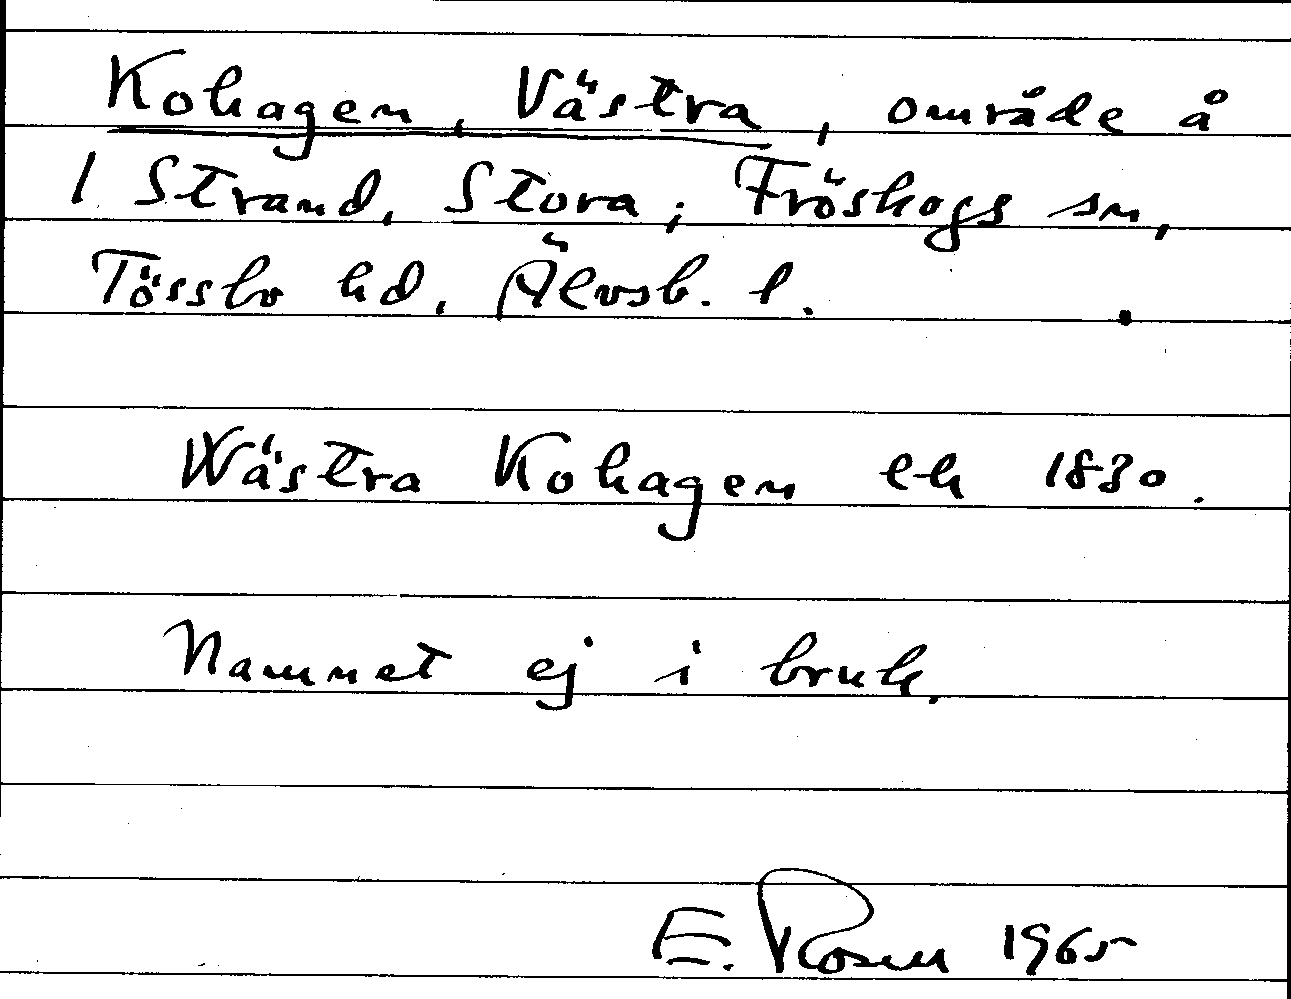 Kohagen, Västra, område å
1 Strand, Stora; Fröskogs sn,
Tössbo hd, Älvsb. l.
Wästra Kohagen ek 1830.
Namnet ej i bruk.
E. Rosén 1965